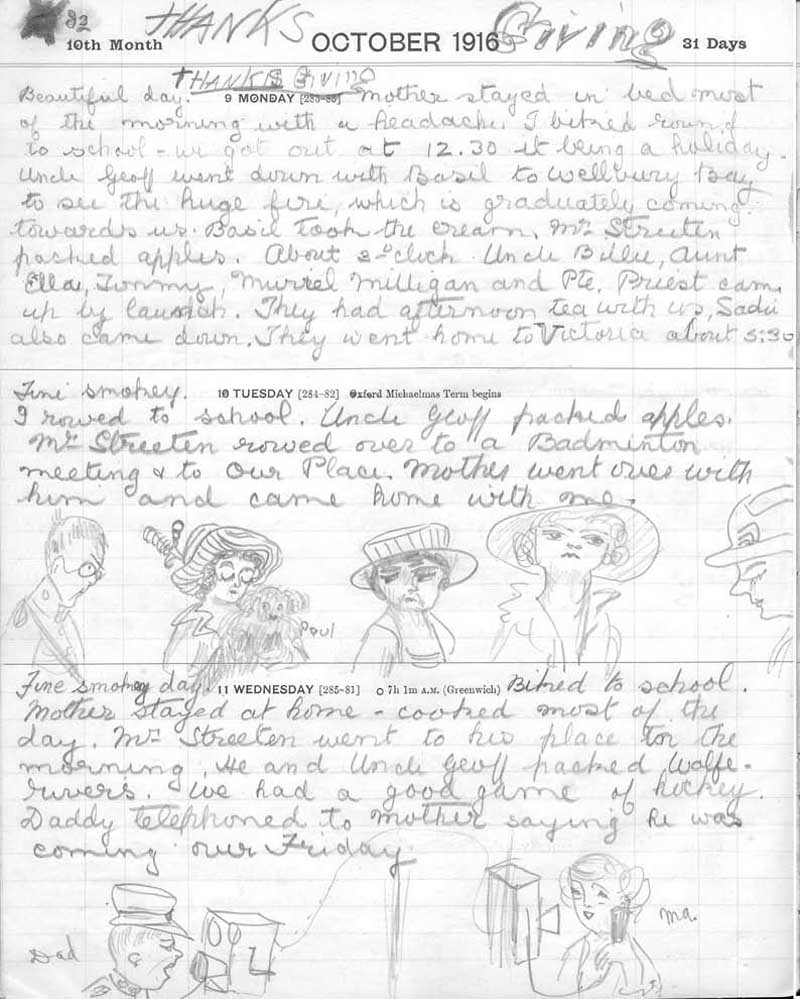 82 THANKS Giving
10th Month OCTOBER 1916 31 Days
THANKS GIVING
Beautiful day. 9 MONDAY [283-83] Mother stayed in bed most
of the morning with a headache. I biked round
to school - we got out at 12.30 it being a holiday.
Uncle Geoff went down with Basil to Wellbury Bay
to see the huge fire, which is graduately coming
towards us. Basil took the cream. Mr Streeten
packed apples. About 2 o'clock Uncle Billie, Aunt
Ella, Tommy, Muriel Milligan and Pte. Priest came
up by launch. They had afternoon tea with us, Sadie
also came down. They went home to Victoria about 5:30
Fine smokey. 10 TUESDAY [284-82] Oxford Michaelmas Term begins
I rowed to school. Uncle Geoff packed apples.
Mr Streeten rowed over to a Badminton
meeting & to Our Place. Mother went over with
him and came home with me.
Paul
Fine smokey day. 11 WEDNESDAY [285-81] O 7h 1m A.M. (Greenwich) Biked to school.
Mother stayed at home - cooked most of the
day. Mr Streeten went to his place for the
morning. He and Uncle Geoff packed Wolfe-
rivers. We had a good game of hockey.
Daddy telephoned to Mother saying he was
coming over Friday.
Dad
Ma.